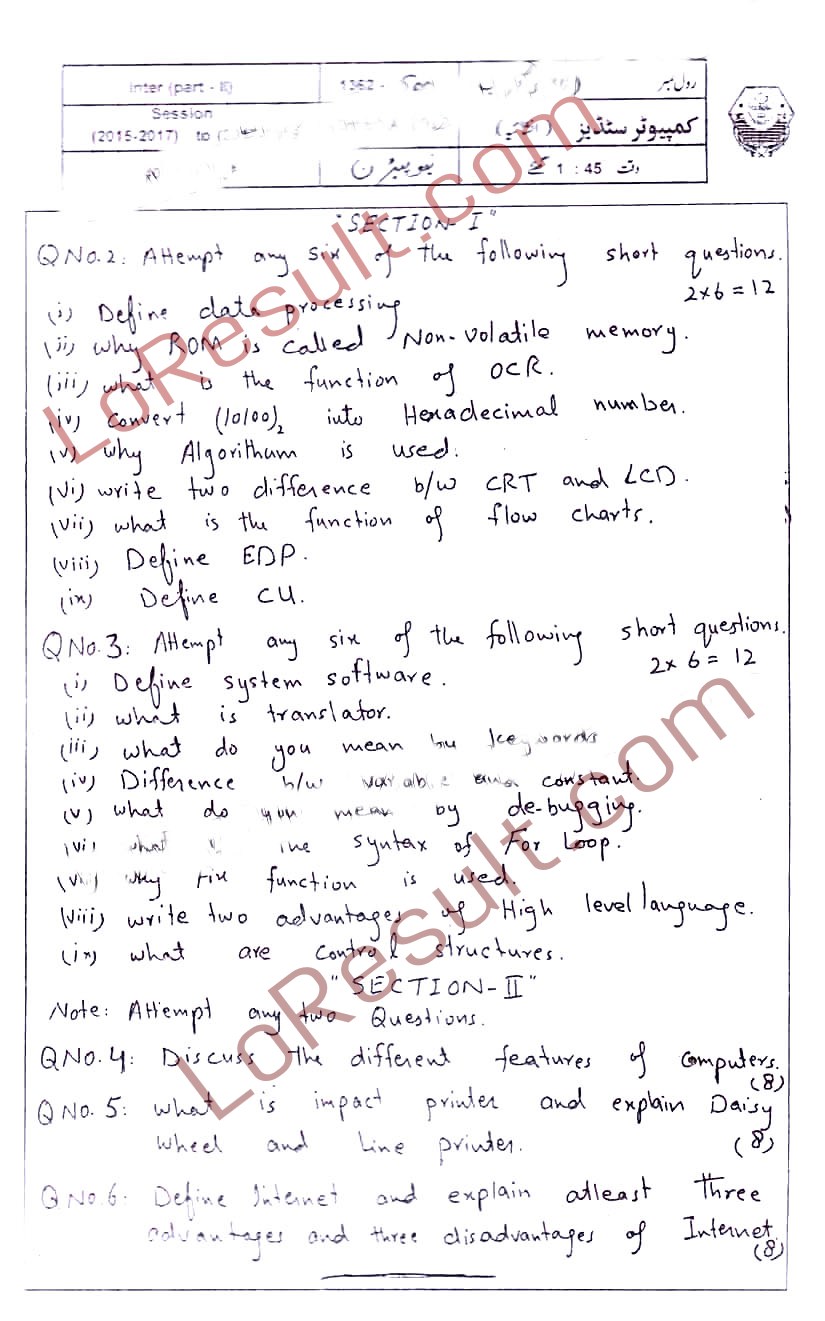 Inter (part - II)
1362 -
رول نمبر
Session
(2015-2017) to
کمپیوٹر سٹڈیز
نیو پیٹرن
وقت 1 : 45 گھنٹے
"SECTION-I"
Q No.2: Attempt any six of the following short questions.
2×6=12
(i) Define data processing
(ii) why ROM is called Non-volatile memory.
(iii) what is the function of OCR.
(iv) convert (10100)2 into Hexadecimal number.
(v) why Algorithum is used.
(vi) write two difference b/w CRT and LCD.
(vii) what is the function of flow charts.
(viii) Define EDP.
(ix) Define CU.
Q No.3: Attempt any six of the following short questions.
2×6=12
(i) Define system software.
(ii) what is translator.
(iii) what do you mean by keywords
(iv) Difference b/w variable and constant.
(v) what do you mean by de-bugging.
(vi) what is the syntax of For Loop.
(vii) why Fix function is used.
(viii) write two advantages of High level language.
(ix) what are control structures.
"SECTION-II"
Note: Attempt any two Questions.
Q No.4: Discuss the different features of computers.
(8)
Q No.5: what is impact printer and explain Daisy
wheel and Line printer. (8)
Q No.6: Define Internet and explain atleast three
advantages and three disadvantages of Internet.
(8)
LoResult.com
LoResult.com